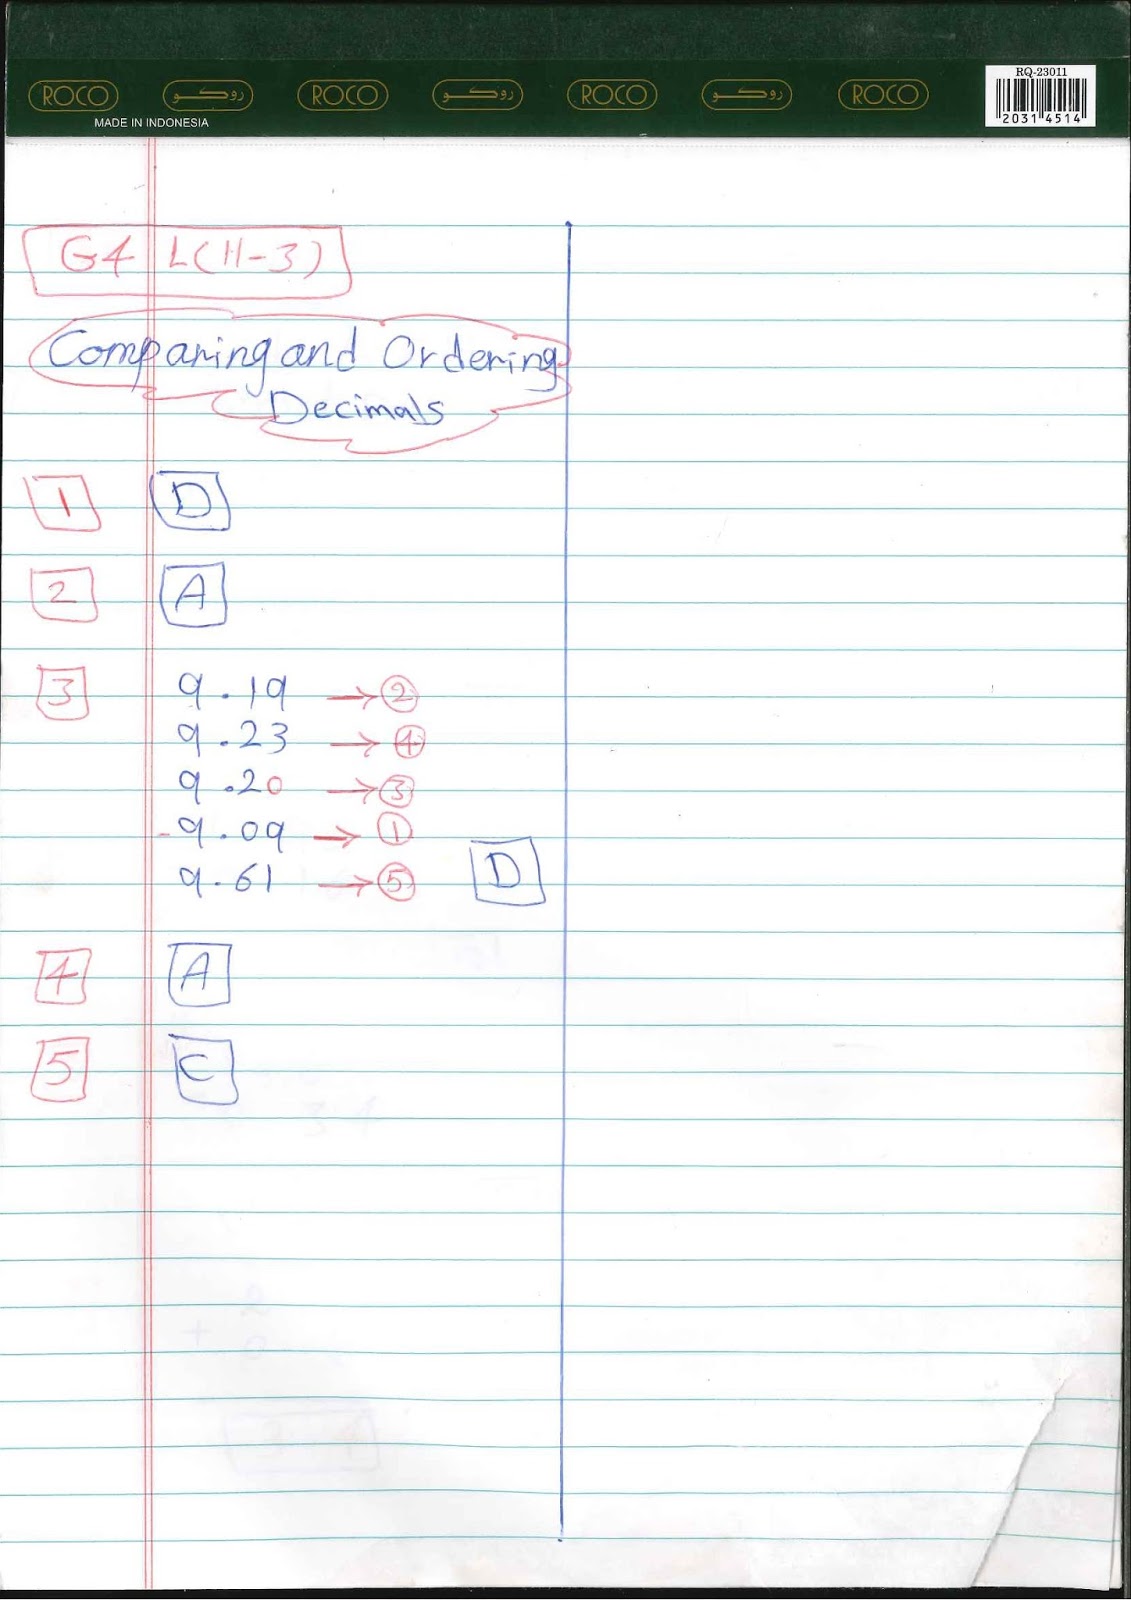 ROCO روكو ROCO روكو ROCO روكو ROCO
MADE IN INDONESIA
RQ-23011
20314514
G4 L(11-3)
Comparing and Ordering
Decimals
1 D
2 A
3 9.19 → 2
9.23 → 4
9.20 → 3
- 9.09 → 1
9.61 → 5 D
4 A
5 C